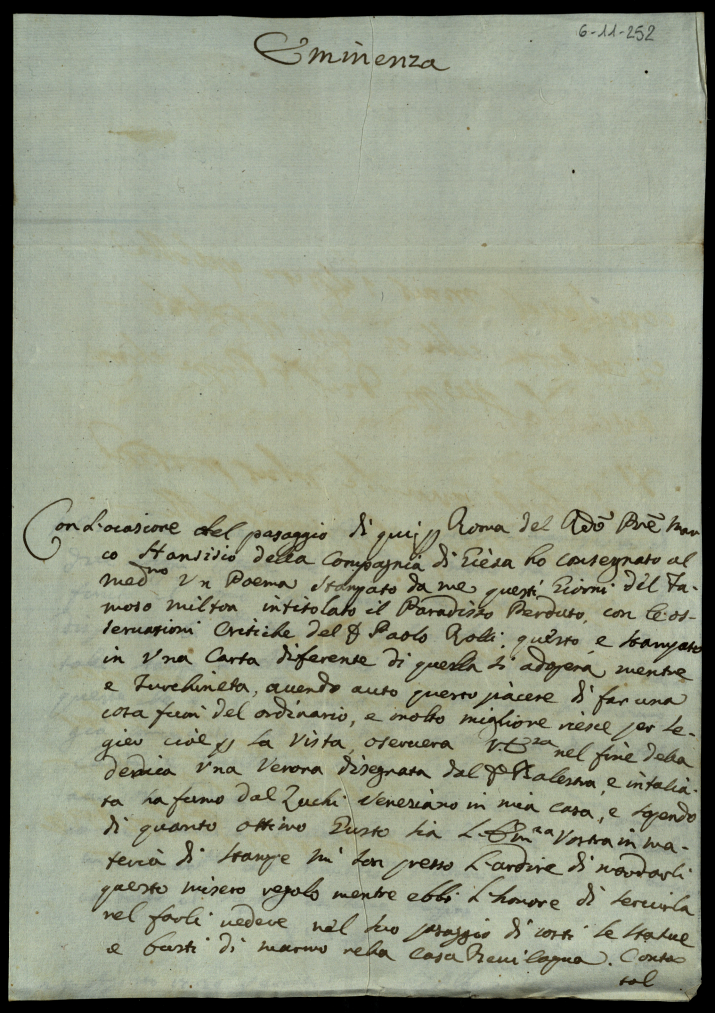 6-11-252
Eminenza
Con L'ocasione del pasaggio di qui p Roma del Rdo Pre Mar=
co Stansisio della Compagnia di Giesa ho consegnato al
medmo Vn Poema stanpato da me questi Giorni del Fa=
moso milton intitolato il Paradisso Perduto, con le os=
servazioni Critiche del S Paolo Rolli, questo è stanpato
in Vna Carta diferente di quella si adopera mentre
e Turchineta, auendo auto questo piacere di far una
cosa fuori del ordinario, e molto migliore riesce per le=
gier cioè p La Vista, oseruera V. Eza nel fine della
dedica Vna Verona disegnata dal S Balestra, e intalia=
ta fu dal Zuchi Veneziano in mia casa, e sapendo
di quanto ottimo Gusto sia L. Emza Vostra in ma=
teria di stanpe mi son presso L'ardire di mandarli
questo misero regolo mentre ebbi L'honore di seruirla
nel farli uedere nel suo pasaggio di costi le statue
e busti di marmo nella Casa Beuilaqua. Conta
tal